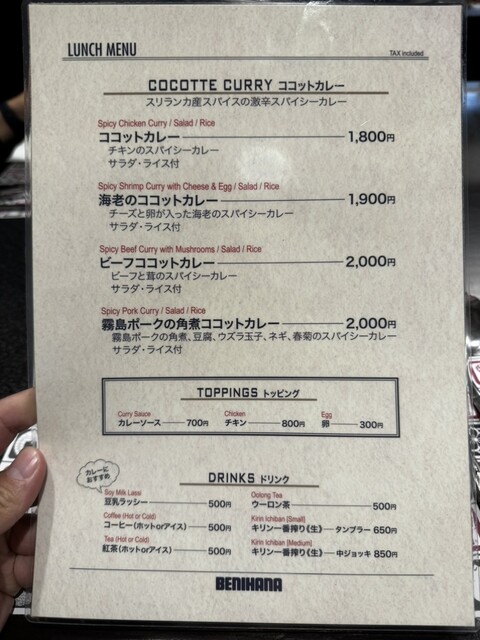 LUNCH MENU
TAX included
COCOTTE CURRY ココットカレー
スリランカ産スパイスの激辛スパイシーカレー
Spicy Chicken Curry / Salad / Rice
ココットカレー 1,800円
チキンのスパイシーカレー
サラダ・ライス付
Spicy Shrimp Curry with Cheese & Egg / Salad / Rice
海老のココットカレー 1,900円
チーズと卵が入った海老のスパイシーカレー
サラダ・ライス付
Spicy Beef Curry with Mushrooms / Salad / Rice
ビーフココットカレー 2,000円
ビーフと茸のスパイシーカレー
サラダ・ライス付
Spicy Pork Curry / Salad / Rice
霧島ポークの角煮ココットカレー 2,000円
霧島ポークの角煮、豆腐、ウズラ玉子、ネギ、春菊のスパイシーカレー
サラダ・ライス付
TOPPINGS トッピング
Curry Sauce Chicken Egg
カレーソース 700円 チキン 800円 卵 300円
DRINKS ドリンク
カレーに
おすすめ
Soy Milk Lassi
豆乳ラッシー 500円
Coffee (Hot or Cold)
コーヒー(ホットorアイス) 500円
Tea (Hot or Cold)
紅茶(ホットorアイス) 500円
Oolong Tea
ウーロン茶 500円
Kirin Ichiban [Small]
キリン一番搾り《生》 タンブラー 650円
Kirin Ichiban [Medium]
キリン一番搾り《生》 中ジョッキ 850円
BENIHANA